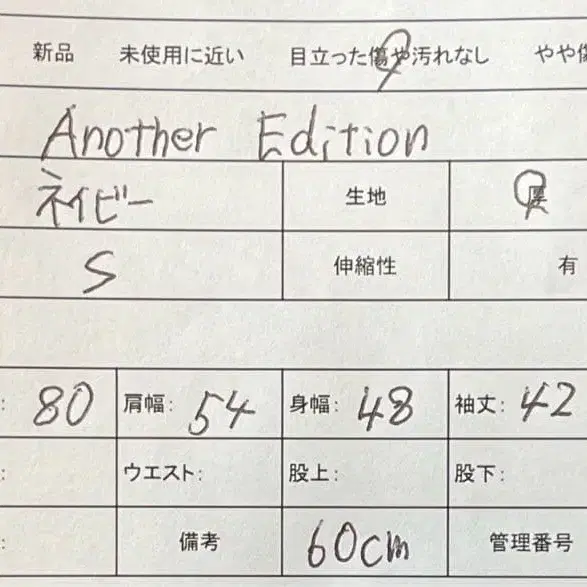 新品 未使用に近い 目立った傷や汚れなし やや傷
Another Edition
ネイビー 生地 厚
S 伸縮性 有
: 80 肩幅: 54 身幅: 48 袖丈: 42
: ウエスト: 股上: 股下:
: 備考 60cm 管理番号